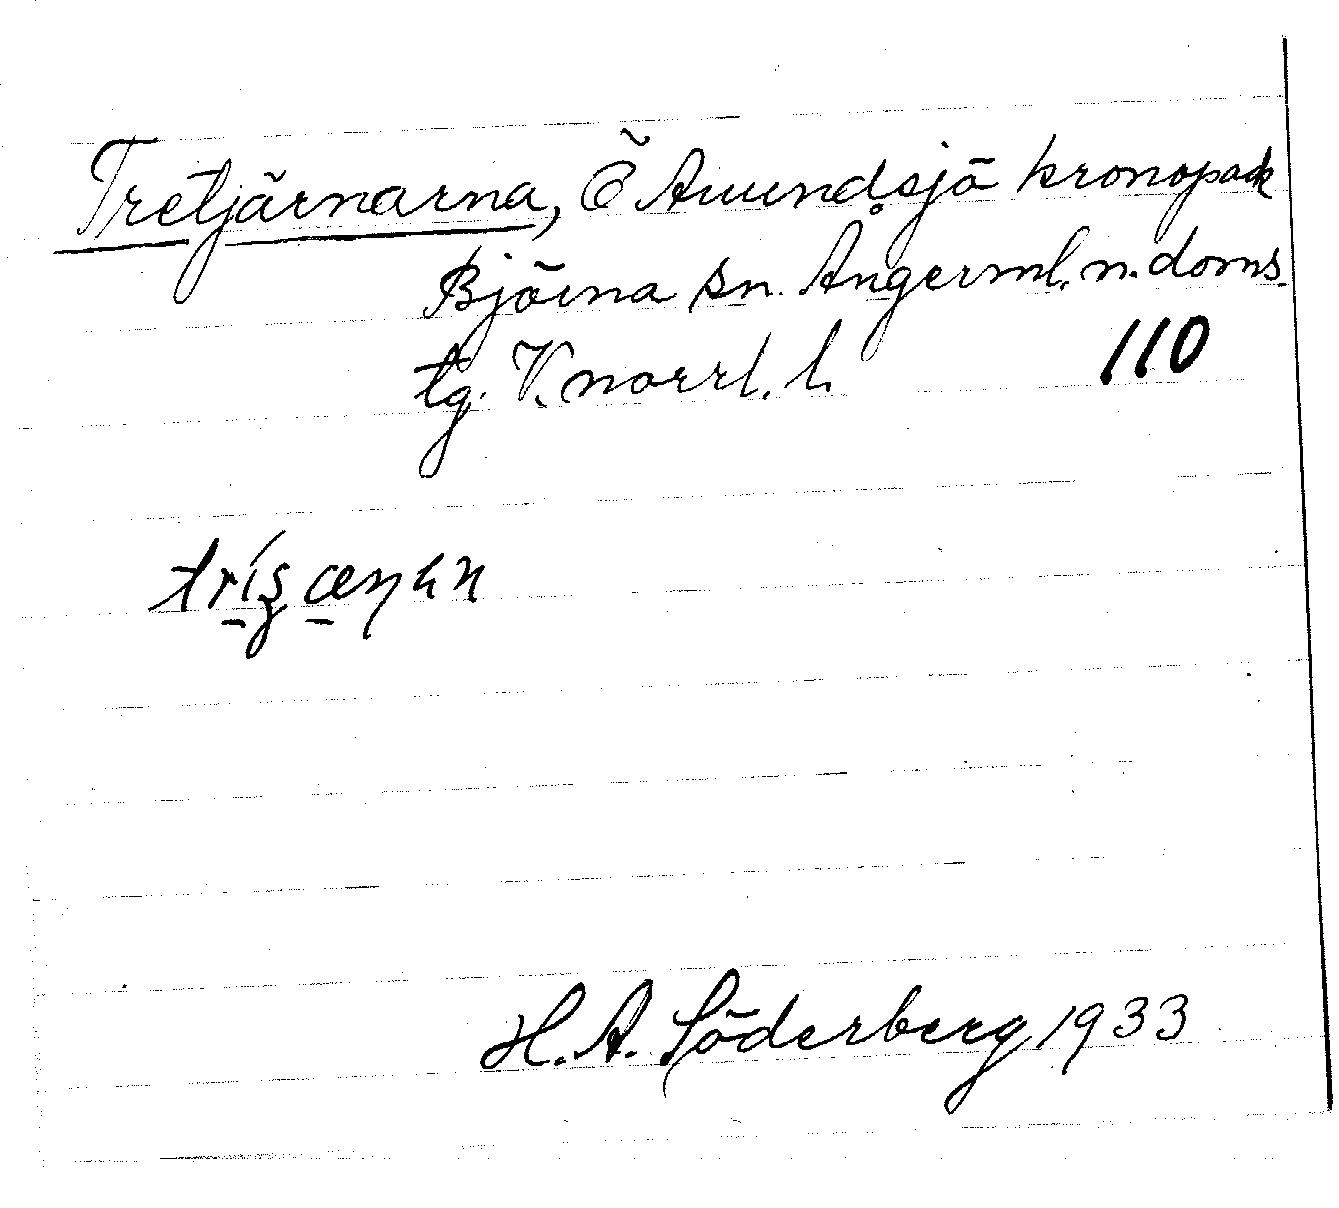 Tretjärnarna, Ö Amundsjö kronopark
Björna sn. Ångerml. n. doms.
tg. V. norrl. l. 110
H. A. Söderberg 1933